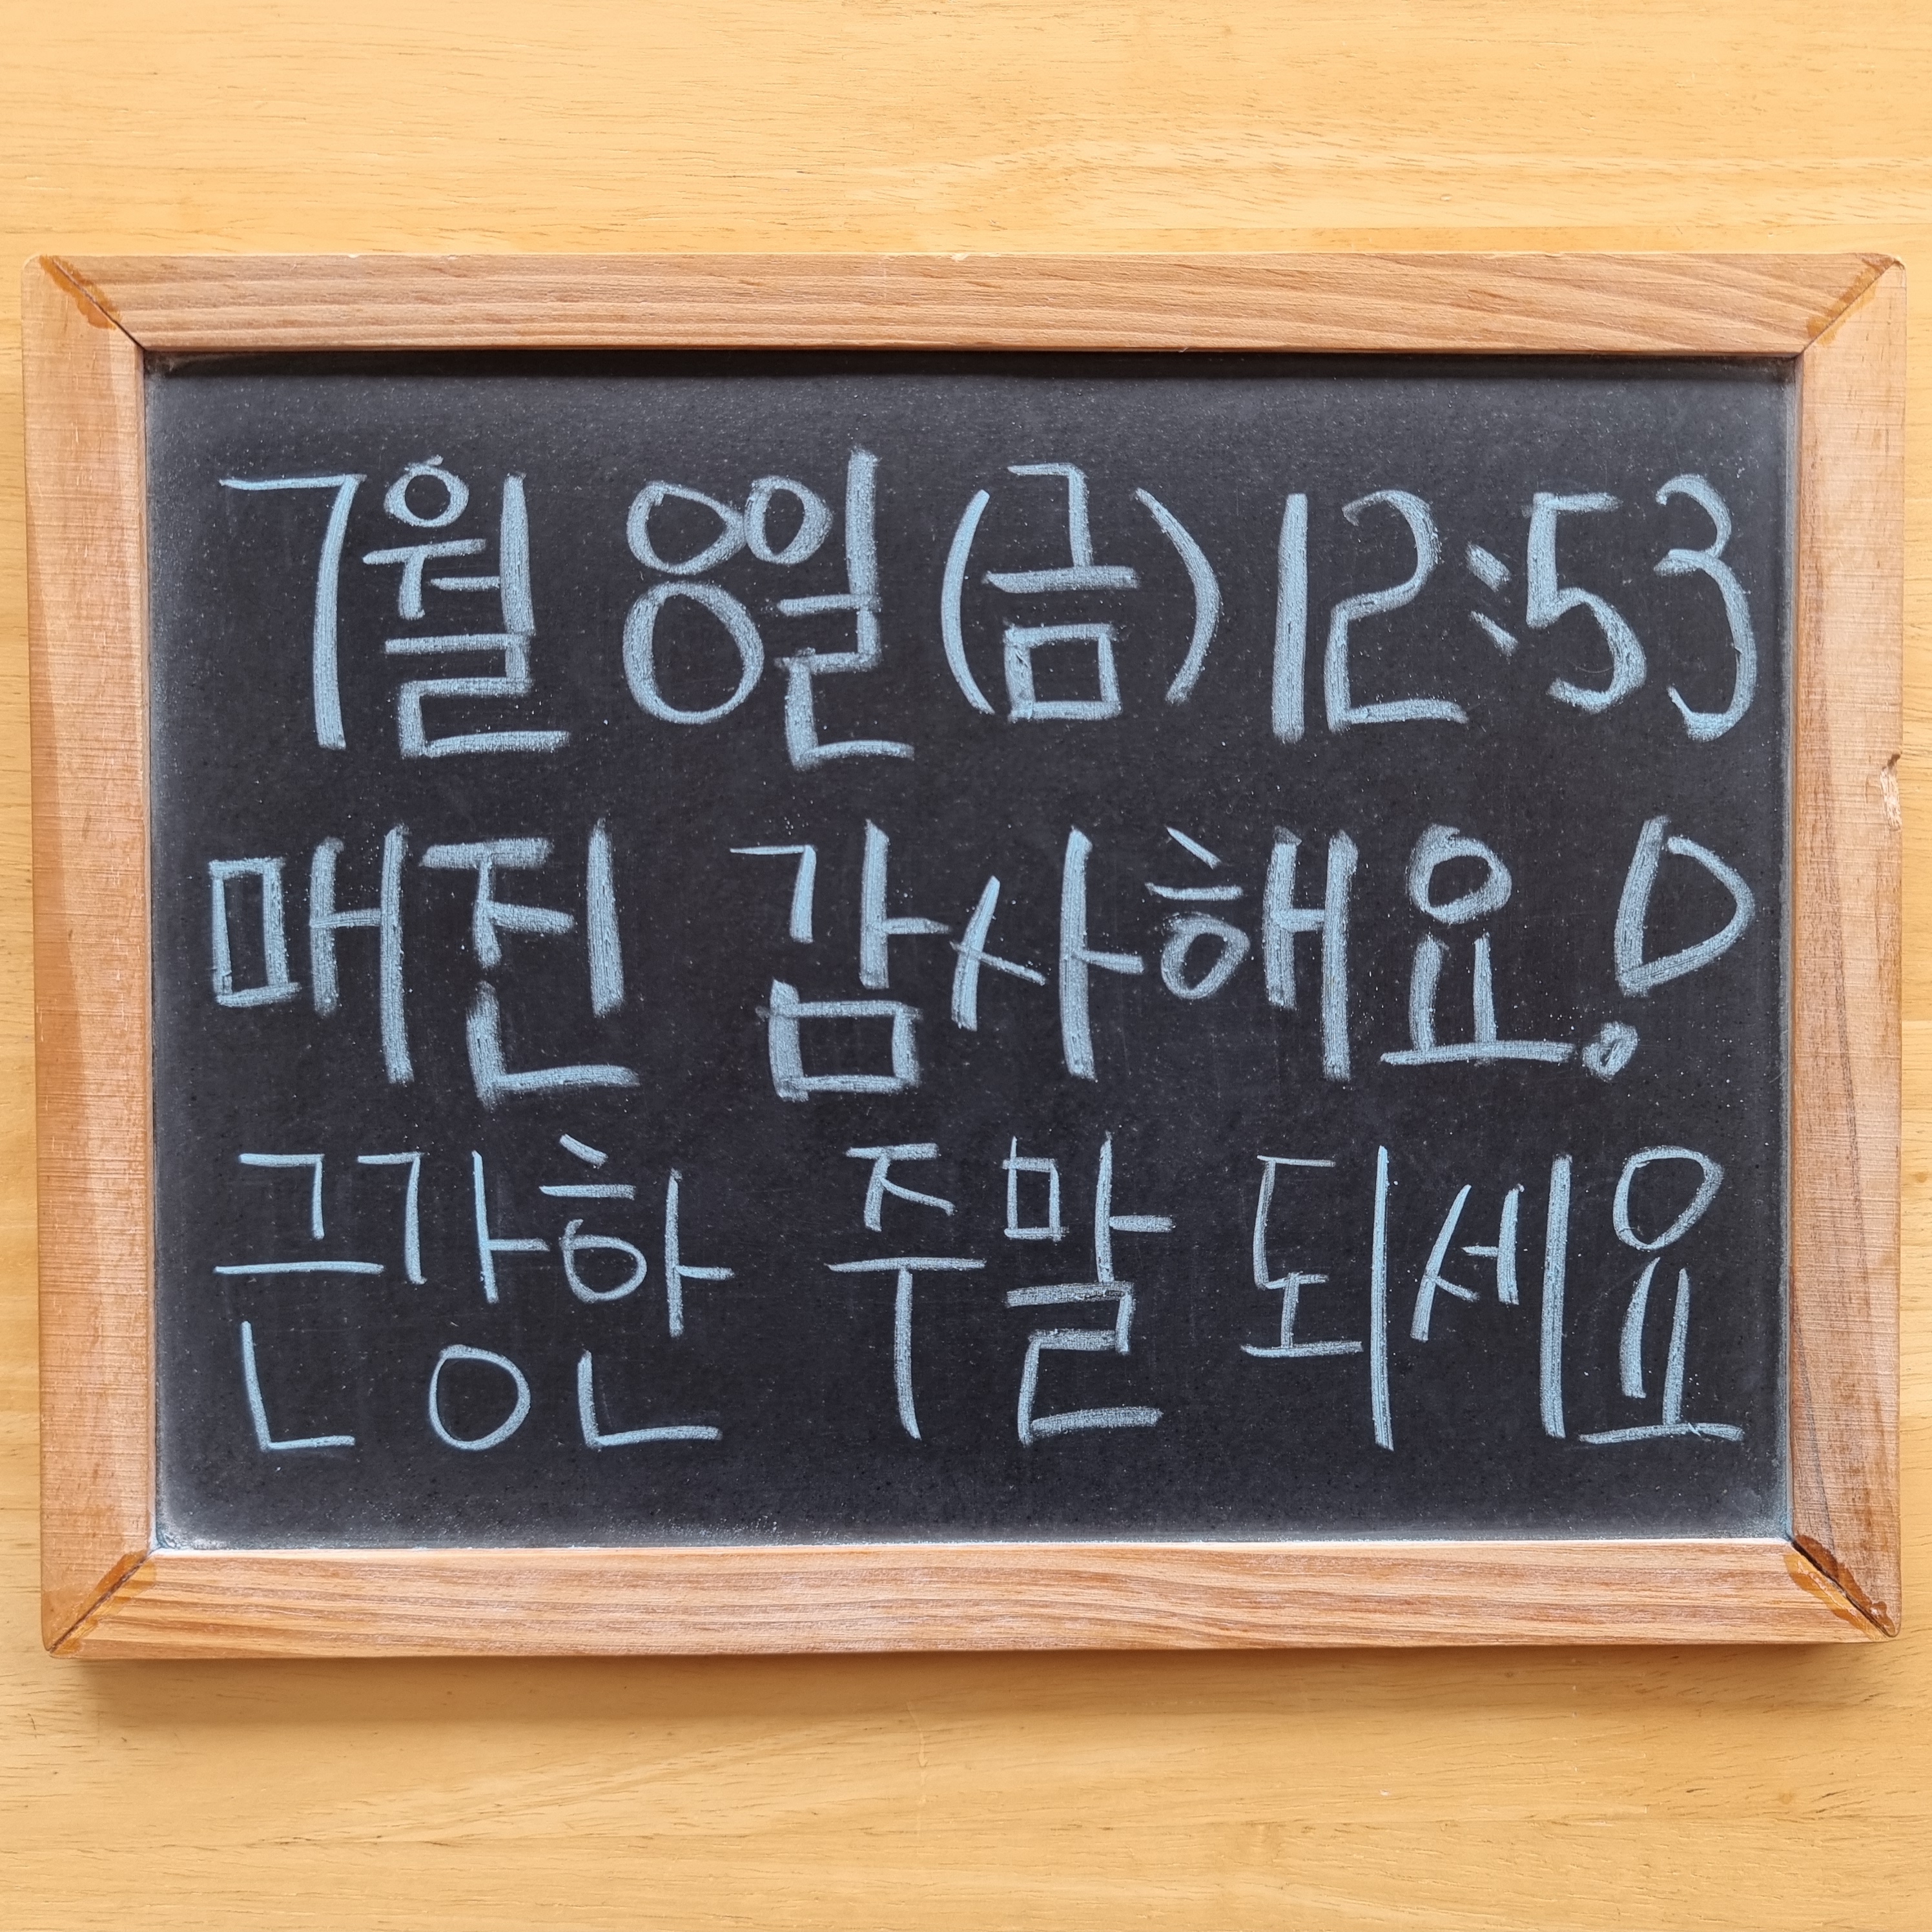 7월 8일(금) 12:53
매진 감사해요!
근강한 주말 되세요